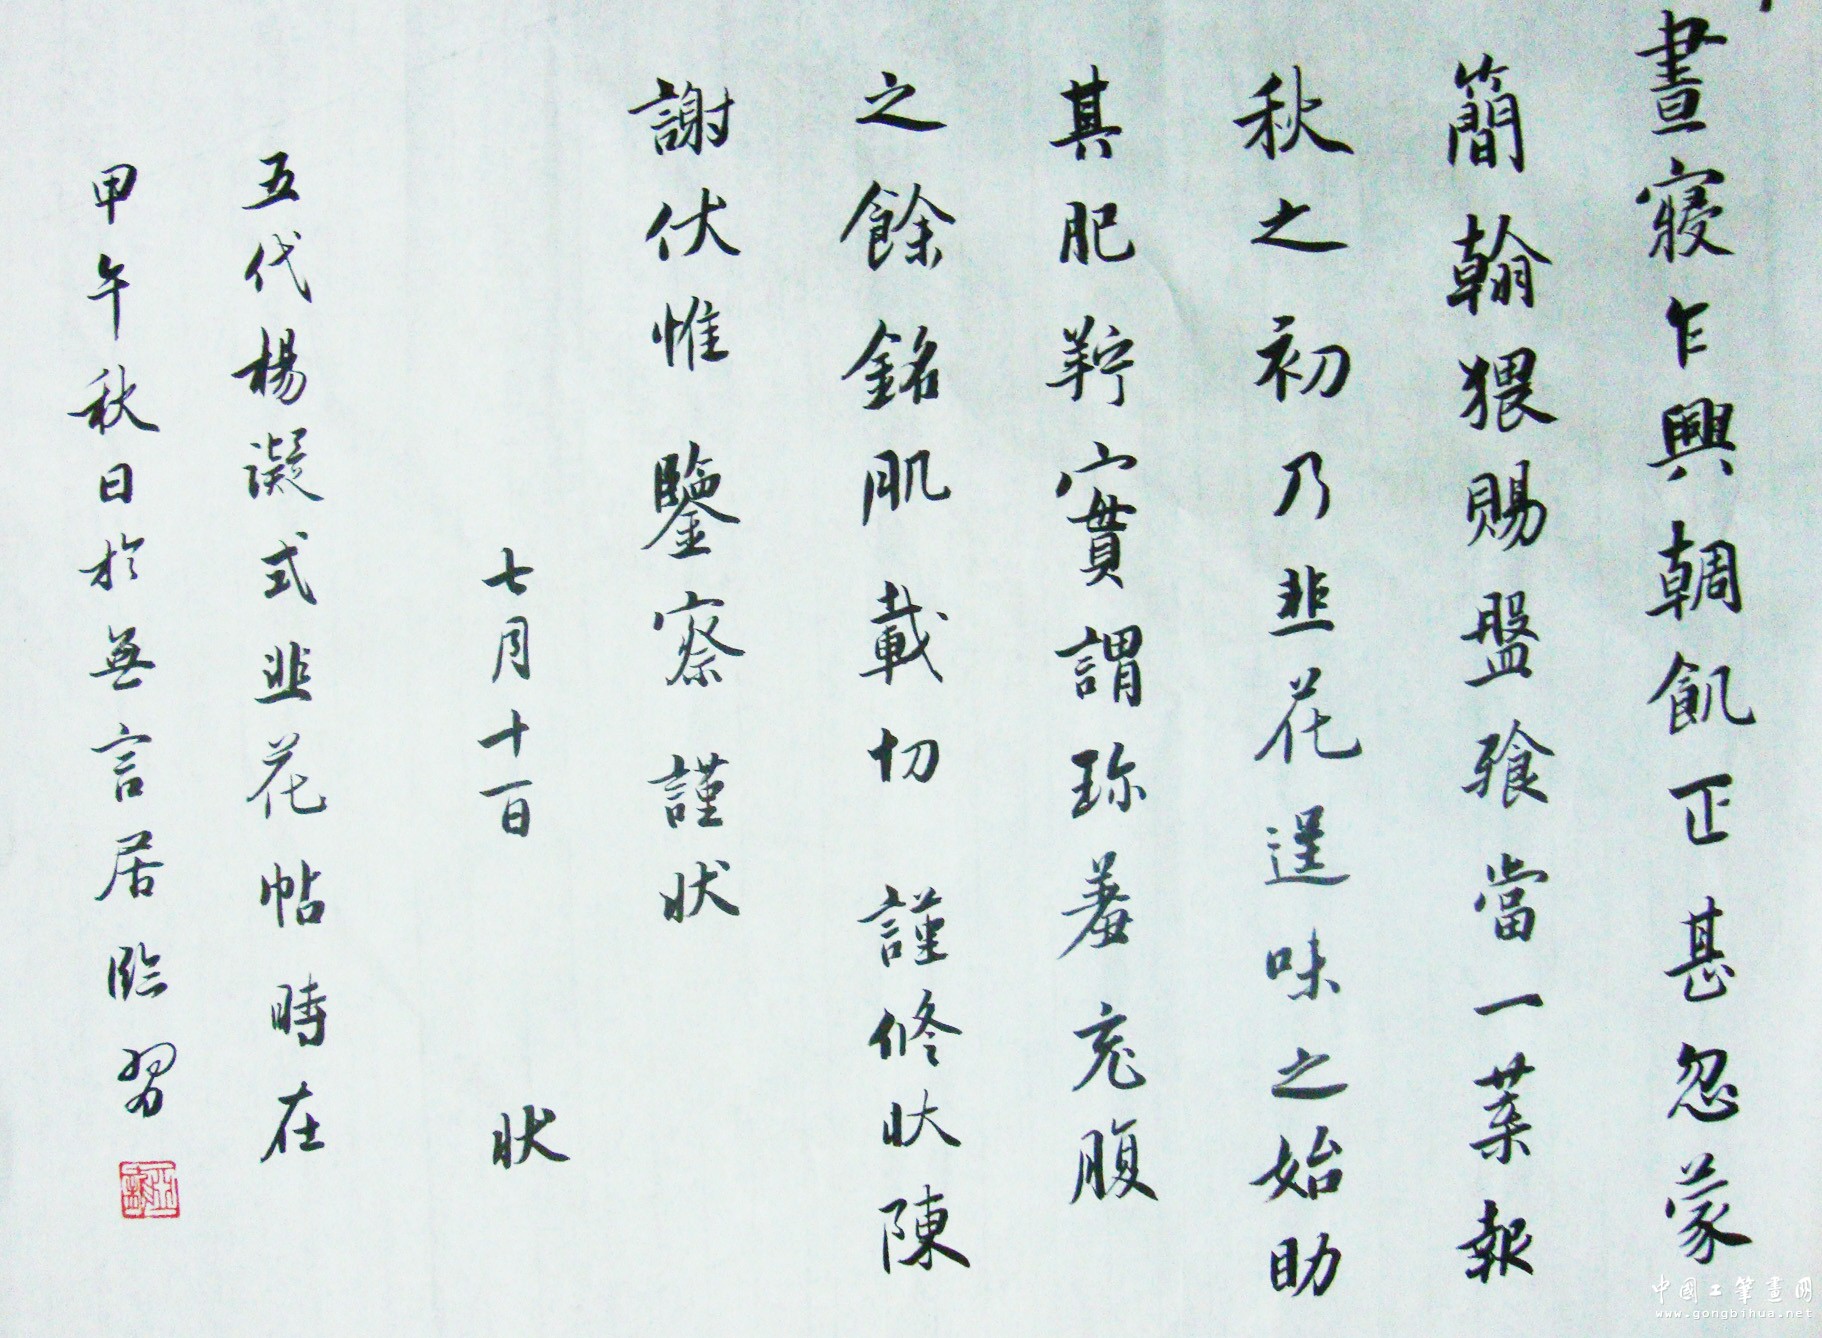 晝寢乍興朝飢正甚忽蒙
簡翰猥賜盤飧當一葉報
秋之初乃韭花逞味之始助
其肥羜實謂珍羞充腹
之餘銘肌載切謹修狀陳
謝伏惟鑒察謹狀
七月十一日 狀
五代楊凝式韭花帖時在
甲午秋日於無言居臨習
中國工筆畫網
www.gongbihua.net